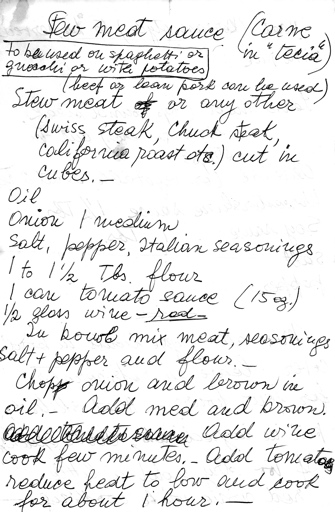 Few meat sauce (Carne
in "tecia")
to be used on spaghetti or
gnocchi or with potatoes
(beef or lean pork can be used)
Stew meat or any other
(swiss steak, Chuck steak,
California roast etc.) cut in
cubes.-
Oil
Onion 1 medium
Salt, pepper, Italian seasonings
1 to 1 1/2 Tbs. flour
1 can tomato sauce (15 oz.)
1/2 glass wine - red -
In bowl mix meat, seasonings
Salt + pepper and flour.-
Chop onion and brown in
oil.- Add med and brown
Add wine
cook few minutes.- Add tomatoe
reduce heat to low and cook
for about 1 hour.-